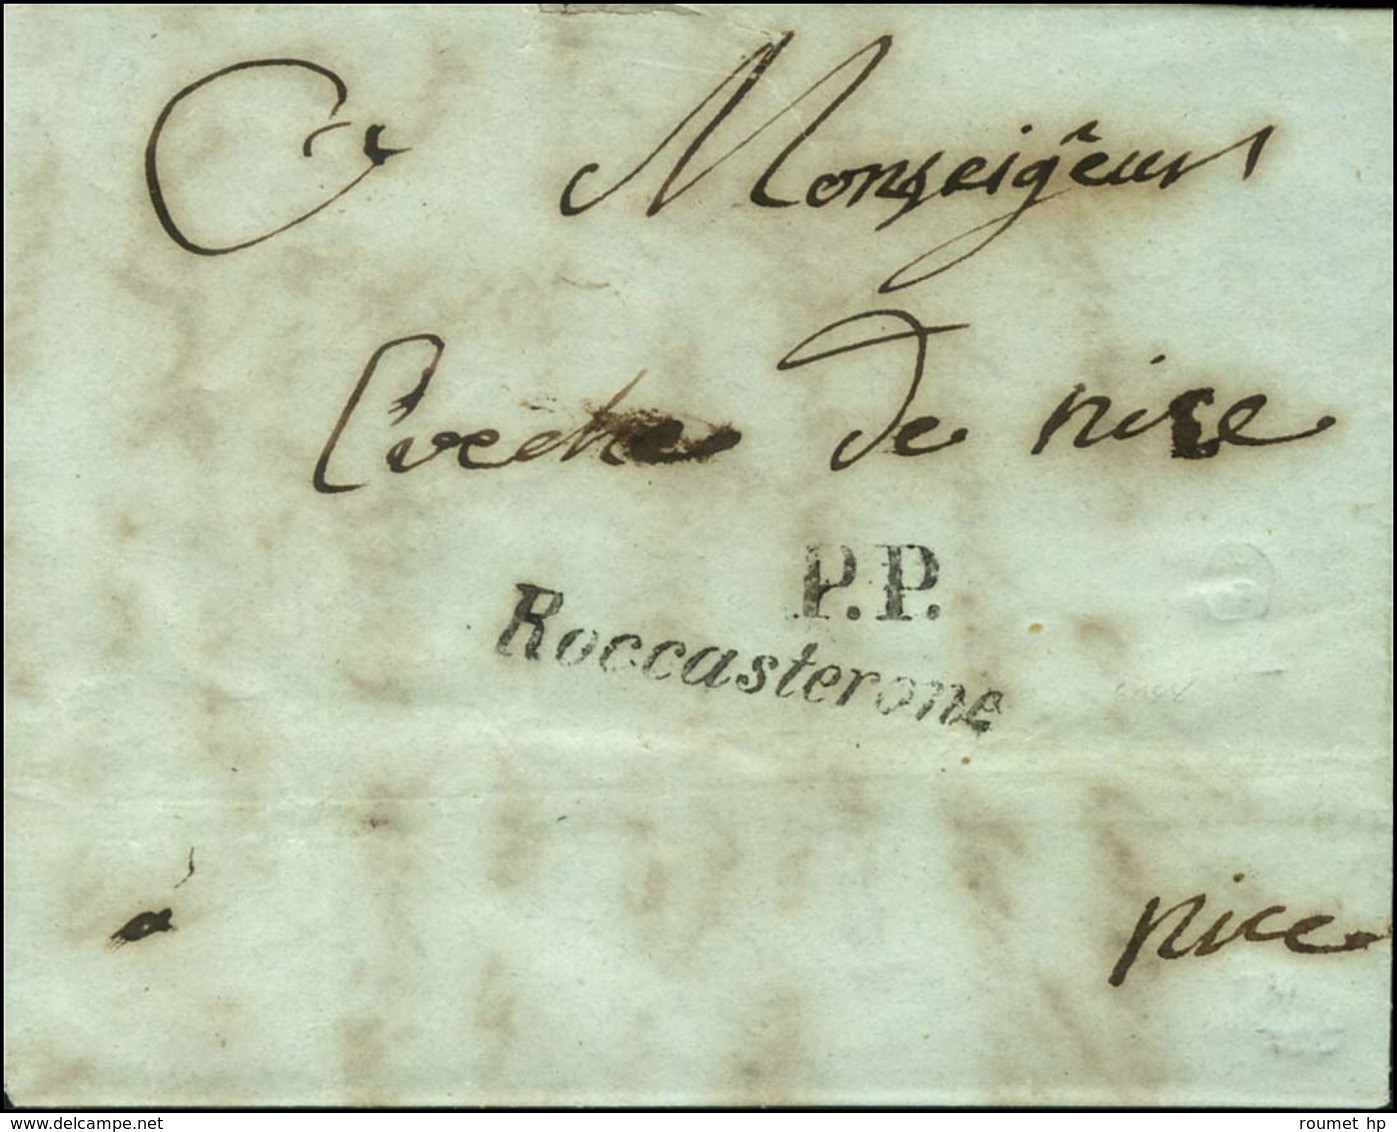 A Monseigneur
L'Evêche de nice
P.P.
Roccasterone
a nice
www.delcampe.net
roumet hp